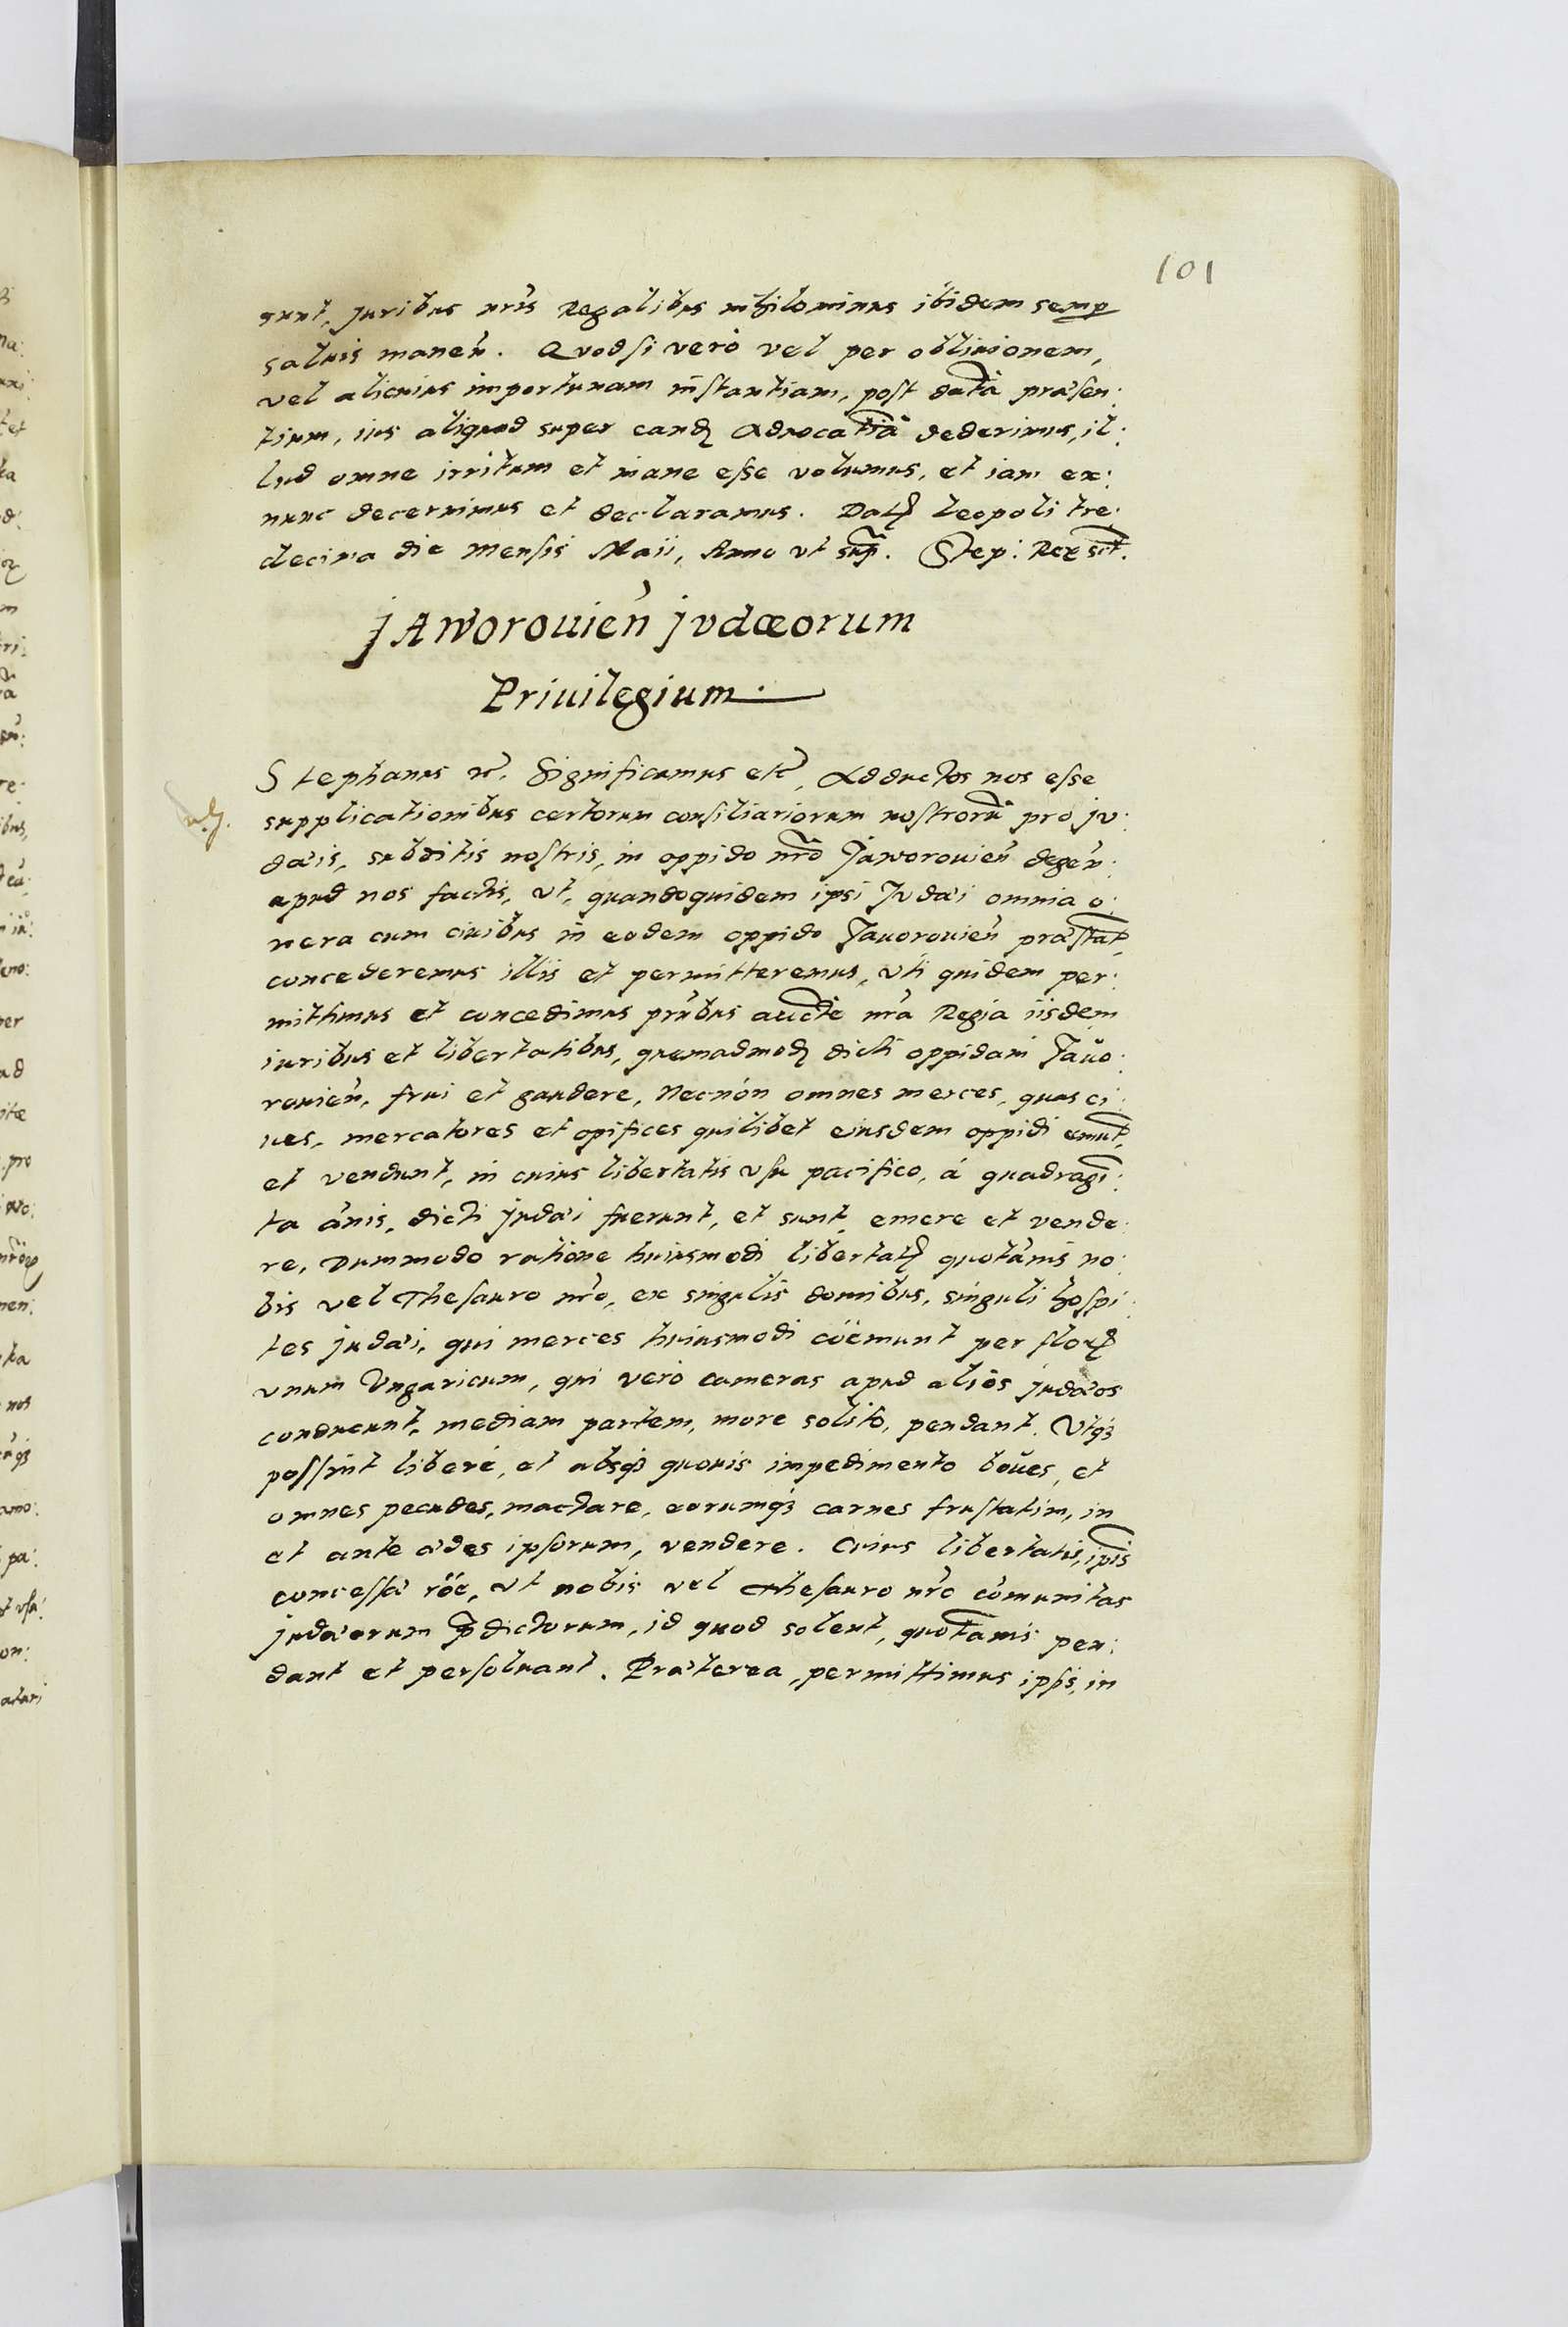 101
sunt, juribus nr̃is Regalibus nihilominus ibidem semp
saluis maneñ. Quodsi verò vel per obliuionem,
vel alicuius importunam instantiam, post datã præsen:
tium, ius aliquod super eandȝ Aduocatiã dederimus, il:
lud omne irritum et inane esse volumus, et iam ex:
nunc decernimus et declaramus. Datȝ Leopoli tre:
decima die Mensis Maii, Anno vt sup̃. Step: Rex sct̃.
jAworouień jvdæorum
Priuilegium.
Stephanus ꝛc̃. Significamus etc̃, Adductos nos esse
supplicationibus certorum consiliariorum nostrorũ pro jv:
dæis, subditis nostris, in oppido nr̃o Jaworouień degeń:
apud nos factis, vt, quandoquidem ipsi Judæi omnia o:
nera cum ciuibus in eodem oppido Jauorouień præstãt,
concederemus illis et permitteremus, vti quidem per:
mittimus et concedimus pñtibus aucte nr̃a Regia iisdem
iuribus et libertatibus, quemadmodȝ dicti oppidani Jauo:
rouień, frui et gaudere, Necnón omnes merces, quas ci:
ues, mercatores et opifices quilibet eiusdem oppidi emũt,
et vendunt, in cuius libertatis vsu pacifico, á quadragĩ:
ta ãnis, dicti judæi fuerunt, et sunt, emere et vende:
re, Dummodo ratione huiusmodi libertatȝ quotãnis no:
bis vel Thesauro nr̃o, ex singulis domibus, singuli hospi:
tes judæi, qui merces huiusmodi cöemunt per florȝ
vnum Vngaricum, qui verò cameras apud aliós judæos
conducunt, mediam partem, more solito, pendant. Vtqȝ
possint liberé, et absqȝ quouis impedimento boues, et
omnes pecudes, mactare, earumqȝ carnes frustatim, in
et ante ædes ipsorum, vendere. Cuius libertatis, ip̃is
concessæ rõe, vt nobis vel Thesauro nr̃o cõmunitas
judæorum p̃dictorum, id quod solent, quotãnis pen:
dant et persoluant. Præterea, permittimus ipsis, in